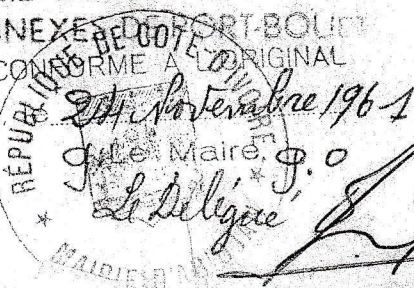 ANNEXE DE PORT-BOUET
CONFORME A L'ORIGINAL
24 Novembre 1961
Le Maire, P.O
Le Délégué
RÉPUBLIQUE DE COTE D'IVOIRE
MAIRIE D'ABIDJAN